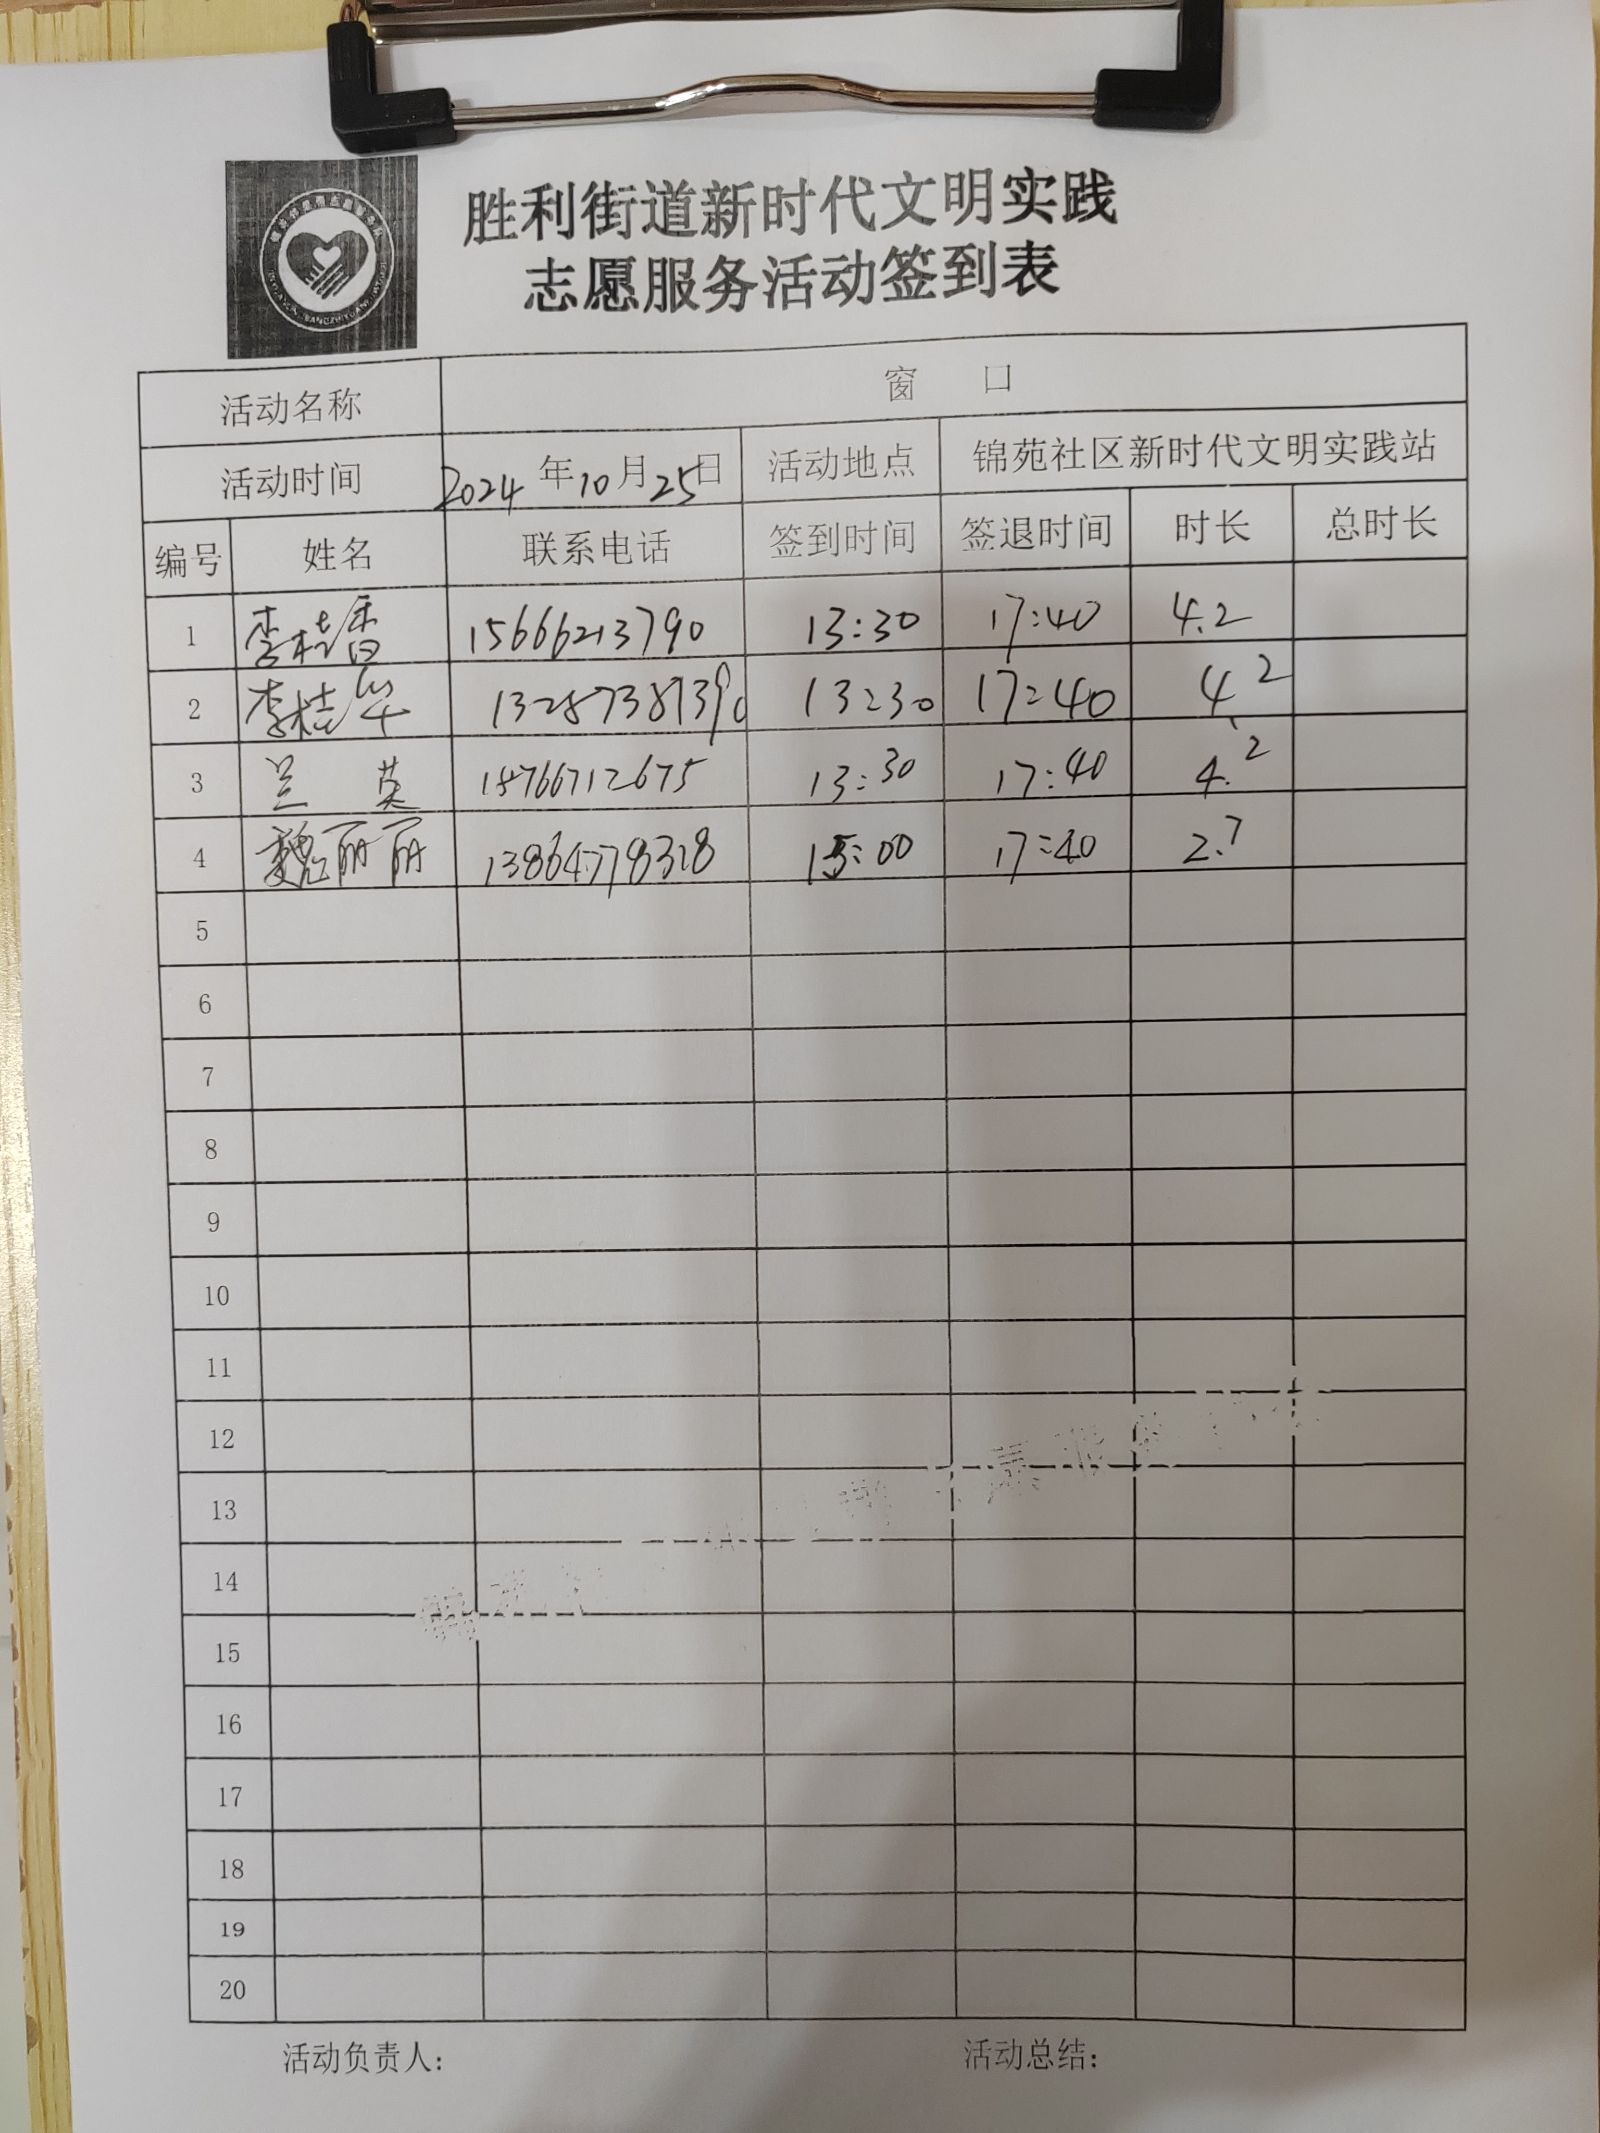 胜利街道新时代文明实践
志愿服务活动签到表
活动名称 窗 口
活动时间 2024年10月25日 活动地点 锦苑社区新时代文明实践站
编号 姓名 联系电话 签到时间 签退时间 时长 总时长
1 李桂香 15666213790 13:30 17:40 4.2
2 李桂华 13287387390 13:30 17:40 4.2
3 兰英 15766712675 13:30 17:40 4.2
4 魏丽丽 13864778328 15:00 17:40 2.7
5
6
7
8
9
10
11
12
13
14
15
16
17
18
19
20
活动负责人: 活动总结: